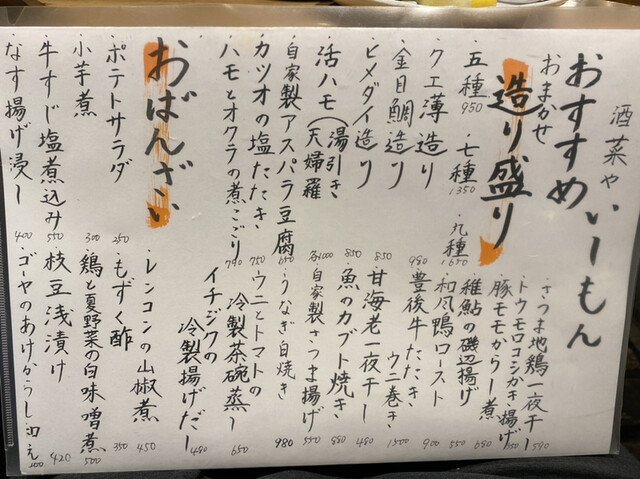 酒菜や いーもん
おすすめ
おまかせ
造り盛り
五種 950 ・七種 1350 ・九種 1650
・クエ薄造り 980
・金目鯛造り 850
・ヒメダイ造り 850
・活ハモ(湯引き 天婦羅 各1000
・自家製アスパラ豆腐 650
・カツオの塩たたき 750
・ハモとオクラの煮こごり 790
・さつま地鶏一夜干し 590
・トウモロコシかき揚げ 550
・豚モモからし煮 680
・稚鮎の磯辺揚げ 550
・和風鴨ロースト 900
・豊後牛たたき ウニ巻き 1500
・甘海老一夜干し 480
・魚のカブト焼き 880
・自家製さつま揚げ 550
・うなぎ白焼き 980
・ウニとトマトの冷製茶碗蒸し 650
イチジクの冷製揚げだし 480
おばんざい
・ポテトサラダ 250
・小芋煮 300
・牛すじ塩煮込み 550
・なす揚げ浸し 400
・レンコンの山椒煮 450
・もずく酢 350
・鶏と夏野菜の白味噌煮 500
・枝豆浅漬け 420
・ゴーヤのあけからし和え